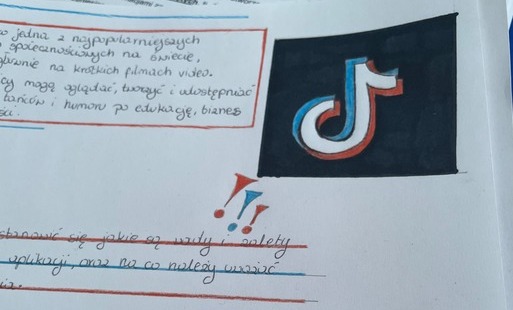 jedna z najpopularniejszych
społecznościowych na świecie,
głównie na krótkich filmach video.
mogą oglądać, tworzyć i udostępniać
tańców i humoru po edukację, biznes
!!!
się jakie są wady i zalety
aplikacji, oraz na co należy uważać